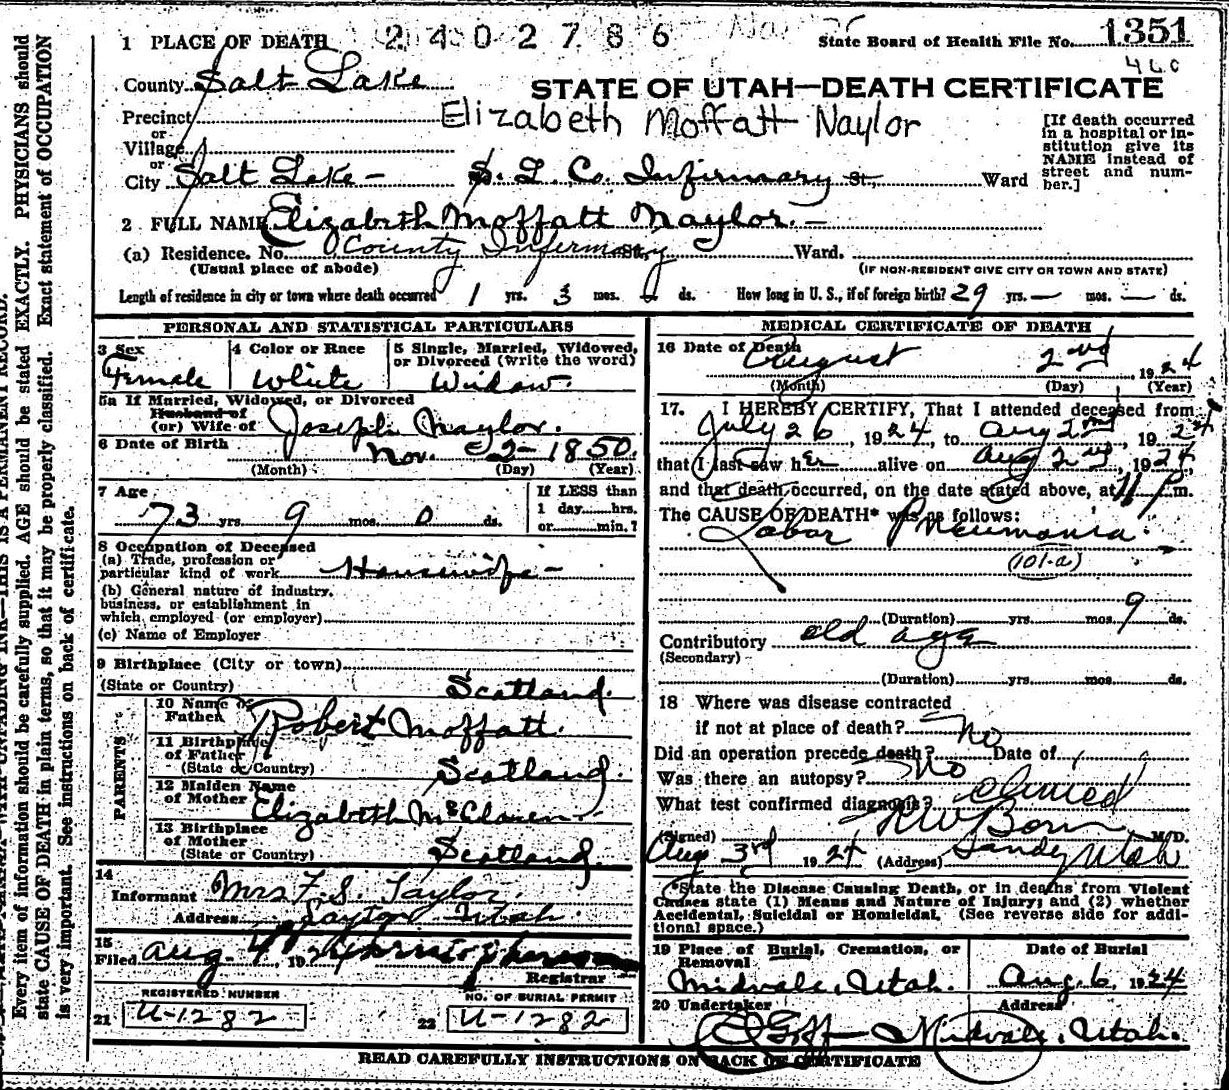 1 PLACE OF DEATH 2402786 State Board of Health File No. 1351
460
County Salt Lake
STATE OF UTAH—DEATH CERTIFICATE
Precinct
or
Village
or
Elizabeth Moffatt Naylor
[If death occurred in a hospital or in-
stitution give its
NAME instead of
street and num-
ber.]
City Salt Lake - S. L. Co. Infirmary St., Ward
2 FULL NAME Elizabeth Moffatt Naylor. -
(a) Residence. No. County Infirmary St. Ward.
(Usual place of abode) (IF NON-RESIDENT GIVE CITY OR TOWN AND STATE)
Length of residence in city or town where death occurred 1 yrs. 3 mos. - ds. How long in U. S., if of foreign birth? 29 yrs. - mos. - ds.
PERSONAL AND STATISTICAL PARTICULARS
3 Sex 4 Color or Race 5 Single, Married, Widowed,
or Divorced (write the word)
Female White Widow.
5a If Married, Widowed, or Divorced
Husband of
(or) Wife of Joseph Naylor.
6 Date of Birth Nov. 2 - 1850.
(Month) (Day) (Year)
7 Age If LESS than
1 day......hrs.
or......min.?
73 yrs. 9 mos. 0 ds.
8 Occupation of Deceased
(a) Trade, profession or
particular kind of work Housewife -
(b) General nature of industry,
business, or establishment in
which employed (or employer)
(c) Name of Employer
9 Birthplace (City or town)
(State or Country) Scotland.
PARENTS
10 Name of
Father Robert Moffatt.
11 Birthplace
of Father
(State or Country) Scotland.
12 Maiden Name
of Mother Elizabeth
13 Birthplace
of Mother
(State or Country) Scotland.
14
Informant Mrs F. S. Taylor.
Address Layton Utah.
15
Filed Aug. 4 1924
Registrar
REGISTERED NUMBER NO. OF BURIAL PERMIT
21 U-1282 22 U-1282
MEDICAL CERTIFICATE OF DEATH
16 Date of Death August 2nd, 1924
(Month) (Day) (Year)
17. I HEREBY CERTIFY, That I attended deceased from
July 26, 1924, to Aug 2nd, 1924
that I last saw her alive on Aug 2nd, 1924
and that death occurred, on the date stated above, at 11 P.m.
The CAUSE OF DEATH* was as follows:
Lobar Pneumonia.
(101-a)
(Duration) yrs. mos. 9 ds.
Contributory old age
(Secondary)
(Duration) yrs. mos. ds.
18 Where was disease contracted
if not at place of death? No
Did an operation precede death? No Date of
Was there an autopsy?
What test confirmed diagnosis?
(Signed) M.D.
Aug 3rd 1924 (Address) Sandy Utah
(*State the Disease Causing Death, or in deaths from Violent
Causes state (1) Means and Nature of Injury; and (2) whether
Accidental, Suicidal or Homicidal. (See reverse side for addi-
tional space.)
19 Place of Burial, Cremation, or
Removal Date of Burial
Midvale, Utah. Aug. 6, 1924
20 Undertaker Address
Goff - Midvale, Utah.
READ CAREFULLY INSTRUCTIONS ON BACK OF CERTIFICATE
Every item of information should be carefully supplied. AGE should be stated EXACTLY. PHYSICIANS should
state CAUSE OF DEATH in plain terms, so that it may be properly classified. Exact statement of OCCUPATION
is very important. See instructions on back of certificate.